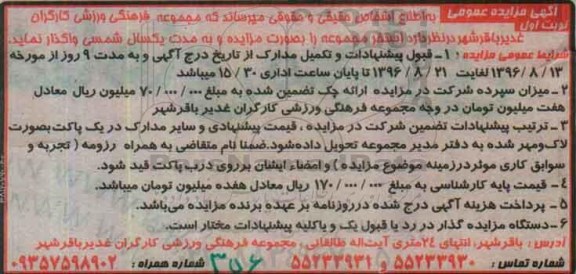 آگهی مزایده عمومی
نوبت اول
به اطلاع اشخاص حقیقی و حقوقی میرساند که مجموعه فرهنگی ورزشی کارگران
غدیر باقرشهر در نظر دارد استخر مجموعه را بصورت مزایده و به مدت یکسال شمسی واگذار نماید.
شرایط عمومی مزایده : ۱- قبول پیشنهادات و تکمیل مدارک از تاریخ درج آگهی و به مدت ۹ روز از مورخه
۱۳ / ۸ / ۱۳۹۶ لغایت ۲۱ / ۸ / ۱۳۹۶ تا پایان ساعت اداری ۳۰ / ۱۵ میباشد
۲- میزان سپرده شرکت در مزایده ارائه چک تضمین شده به مبلغ ۰۰۰/ ۰۰۰/ ۷۰ میلیون ریال معادل
هفت میلیون تومان در وجه مجموعه فرهنگی ورزشی کارگران غدیر باقرشهر
۳- ترتیب پیشنهادات تضمین شرکت در مزایده ، قیمت پیشنهادی و سایر مدارک در یک پاکت بصورت
لاک و مهر شده به دفتر مدیر مجموعه تحویل داده شود. ضمنا نام متقاضی به همراه رزومه ( تجربه و
سوابق کاری موثر در زمینه موضوع مزایده ) و امضاء ایشان بر روی درب پاکت قید شود.
۴- قیمت پایه کارشناسی به مبلغ ۰۰۰/ ۰۰۰/ ۱۷۰ ریال معادل هفده میلیون تومان میباشد.
۵- پرداخت هزینه آگهی درج شده در روزنامه بر عهده برنده مزایده می‌باشد.
۶- دستگاه مزایده گذار در رد یا قبول یک و یا کلیه پیشنهادات مختار است.
آدرس: باقرشهر، انتهای ۲۴متری آیت‌اله طالقانی، مجموعه فرهنگی ورزشی کارگران غدیر باقرشهر
شماره تماس : ۵۵۲۳۳۹۳۰ و ۵۵۲۳۳۹۳۱ ۳۵۶ شماره همراه : ۰۹۳۵۷۵۹۸۹۰۲